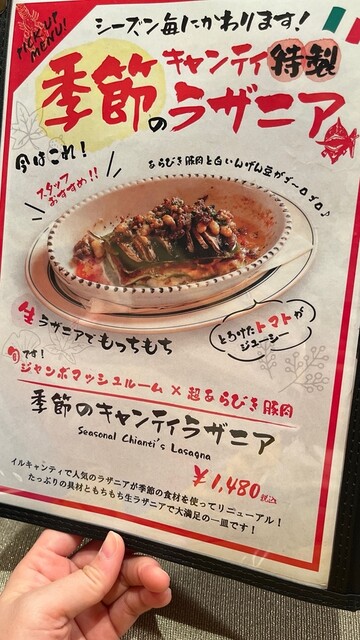 PICK UP
MENU!
シーズン毎にかわります!
季節のキャンティ特製
ラザニア
今はこれ!
スタッフ
おすすめ!!
あらびき豚肉と白いんげん豆がゴーロゴロ♪
生ラザニアでもっちもち
とろけたトマトが
ジューシー
旬です!
ジャンボマッシュルーム×超あらびき豚肉
季節のキャンティラザニア
Seasonal Chianti's Lasagna
¥1,480税込
イルキャンティで人気のラザニアが季節の食材を使ってリニューアル!
たっぷりの具材ともちもち生ラザニアで大満足の一皿です!